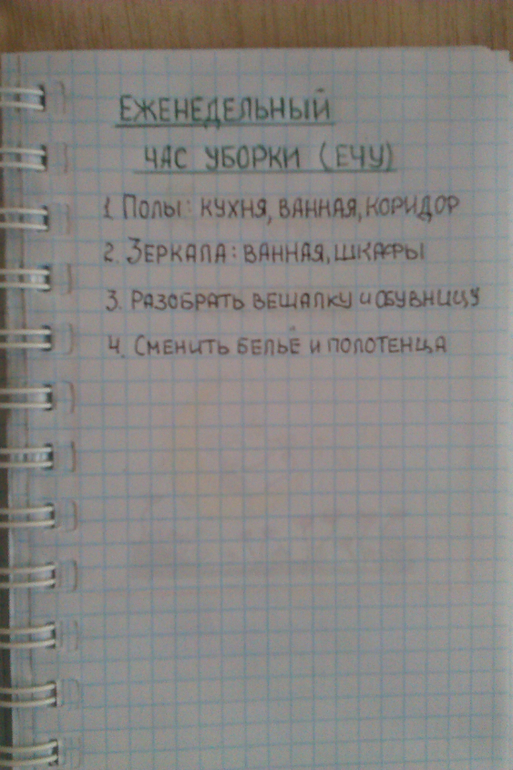 ЕЖЕНЕДЕЛЬНЫЙ
ЧАС УБОРКИ (ЕЧУ)
1. ПОЛЫ: КУХНЯ, ВАННАЯ, КОРИДОР
2. ЗЕРКАЛА: ВАННАЯ, ШКАФЫ
3. РАЗОБРАТЬ ВЕШАЛКУ И ОБУВНИЦУ
4. СМЕНИТЬ БЕЛЬЁ И ПОЛОТЕНЦА